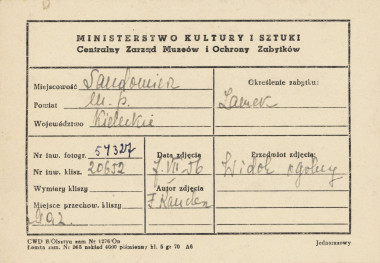 MINISTERSTWO KULTURY I SZTUKI
Centralny Zarząd Muzeów i Ochrony Zabytków
Miejscowość Sandomierz
Powiat m. p.
Województwo Kieleckie
Określenie zabytku:
Zamek
Nr inw. fotogr. 57327
Nr inw. klisz. 20652
Wymiary kliszy
Miejsce przechow. kliszy
Data zdjęcia
VII 56
Autor zdjęcia
Przedmiot zdjęcia:
Widok ogólny
CWD B/Olsztyn zam Nr 1276/On
zam. Nr 365 nakład 4000 piśmienny kl. 5 gr 70 A6
Jednorazowy